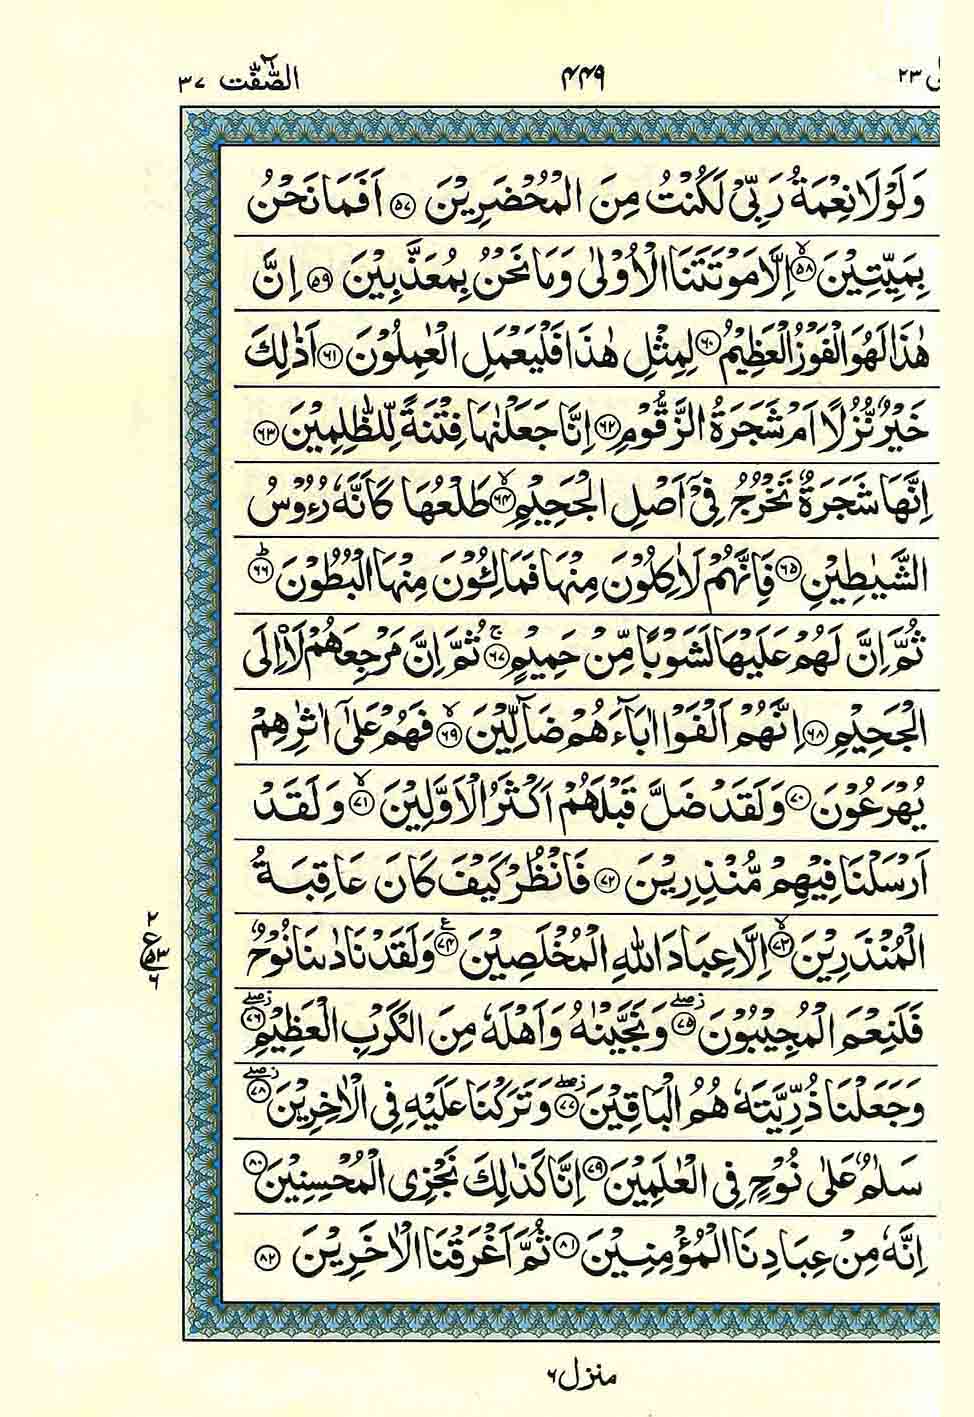 الصّٰفّٰت ٣٧ ٤٤٩ ٢٣
وَلَوْلَا نِعْمَةُ رَبِّیْ لَكُنْتُ مِنَ الْمُحْضَرِیْنَ ﴿۵۷﴾ اَفَمَا نَحْنُ
بِمَیِّتِیْنَ ﴿۵۸﴾ۙ اِلَّا مَوْتَتَنَا الْاُوْلٰی وَمَا نَحْنُ بِمُعَذَّبِیْنَ ﴿۵۹﴾ اِنَّ
هٰذَا لَهُوَ الْفَوْزُ الْعَظِیْمُ ﴿۶۰﴾ لِمِثْلِ هٰذَا فَلْیَعْمَلِ الْعٰمِلُوْنَ ﴿۶۱﴾ اَذٰلِكَ
خَیْرٌ نُّزُلًا اَمْ شَجَرَةُ الزَّقُّوْمِ ﴿۶۲﴾ اِنَّا جَعَلْنٰهَا فِتْنَةً لِّلظّٰلِمِیْنَ ﴿۶۳﴾
اِنَّهَا شَجَرَةٌ تَخْرُجُ فِیْۤ اَصْلِ الْجَحِیْمِ ﴿۶۴﴾ۙ طَلْعُهَا كَاَنَّهٗ رُءُوْسُ
الشَّیٰطِیْنِ ﴿۶۵﴾ فَاِنَّهُمْ لَاٰكِلُوْنَ مِنْهَا فَمَالِـُٔوْنَ مِنْهَا الْبُطُوْنَ ﴿۶۶﴾ؕ
ثُمَّ اِنَّ لَهُمْ عَلَیْهَا لَشَوْبًا مِّنْ حَمِیْمٍ ﴿۶۷﴾ۚ ثُمَّ اِنَّ مَرْجِعَهُمْ لَا۠اِلَی
الْجَحِیْمِ ﴿۶۸﴾ اِنَّهُمْ اَلْفَوْا اٰبَآءَهُمْ ضَآلِّیْنَ ﴿۶۹﴾ۙ فَهُمْ عَلٰۤی اٰثٰرِهِمْ
یُهْرَعُوْنَ ﴿۷۰﴾ وَلَقَدْ ضَلَّ قَبْلَهُمْ اَكْثَرُ الْاَوَّلِیْنَ ﴿۷۱﴾ۙ وَلَقَدْ
اَرْسَلْنَا فِیْهِمْ مُّنْذِرِیْنَ ﴿۷۲﴾ فَانْظُرْ كَیْفَ كَانَ عَاقِبَةُ
الْمُنْذَرِیْنَ ﴿۷۳﴾ۙ اِلَّا عِبَادَ اللّٰهِ الْمُخْلَصِیْنَ ﴿۷۴﴾ وَلَقَدْ نَادٰىنَا نُوْحٌ
٢ ع ٥٣ ٦
فَلَنِعْمَ الْمُجِیْبُوْنَ ﴿۷۵﴾ وَنَجَّیْنٰهُ وَاَهْلَهٗ مِنَ الْكَرْبِ الْعَظِیْمِ ﴿۷۶﴾
وَجَعَلْنَا ذُرِّیَّتَهٗ هُمُ الْبَاقِیْنَ ﴿۷۷﴾ وَتَرَكْنَا عَلَیْهِ فِی الْاٰخِرِیْنَ ﴿۷۸﴾
سَلٰمٌ عَلٰی نُوْحٍ فِی الْعٰلَمِیْنَ ﴿۷۹﴾ اِنَّا كَذٰلِكَ نَجْزِی الْمُحْسِنِیْنَ ﴿۸۰﴾
اِنَّهٗ مِنْ عِبَادِنَا الْمُؤْمِنِیْنَ ﴿۸۱﴾ ثُمَّ اَغْرَقْنَا الْاٰخَرِیْنَ ﴿۸۲﴾
منزل ٦